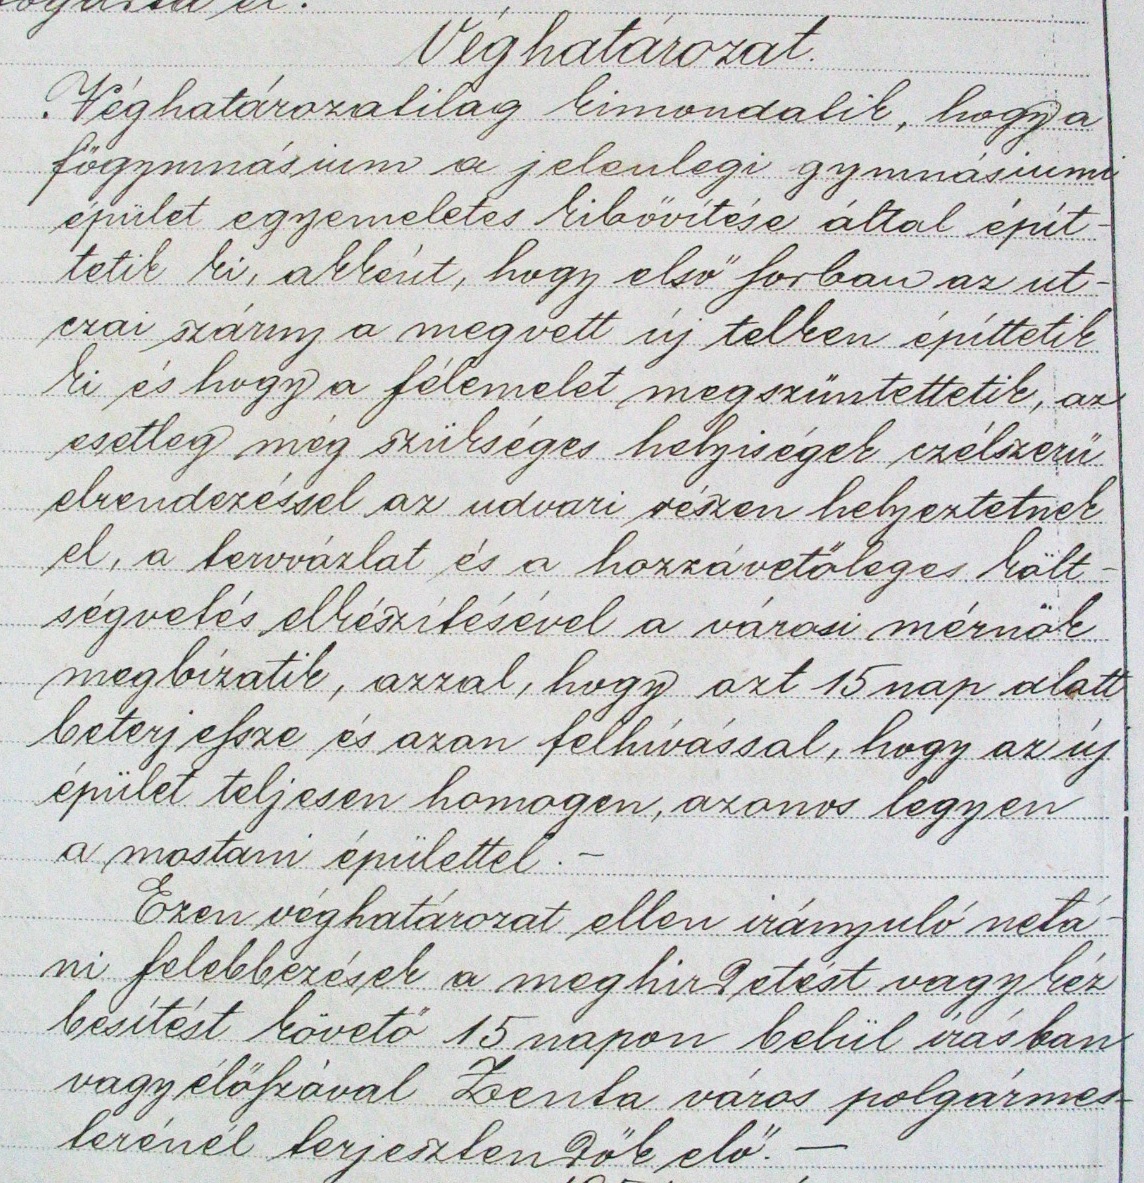 Véghatározat.
Véghatározatilag kimondatik, hogy a
főgymnásium a jelenlegi gymnásiumi
épület egyemeletes kibővítése által épít-
tetik ki, akként, hogy első sorban az ut-
czai szárny a megvett új telken építtetik
ki és hogy a félemelet megszüntettetik, az
esetleg még szükséges helyiségek czélszerű
elrendezéssel az udvari részen helyeztetnek
el, a tervvázlat és a hozzávetőleges költ-
ségvetés elkészítésével a városi mérnök
megbízatik, azzal, hogy azt 15 nap alatt
beterjessze és azon felhívással, hogy az új
épület teljesen homogen, azonos legyen
a mostani épülettel. –
Ezen véghatározat ellen irányuló netá-
ni felebbezések a meghirdetést vagy kéz
besítést követő 15 napon belül írásban
vagy élőszóval Zenta város polgármes-
terénél terjesztendők elő. –